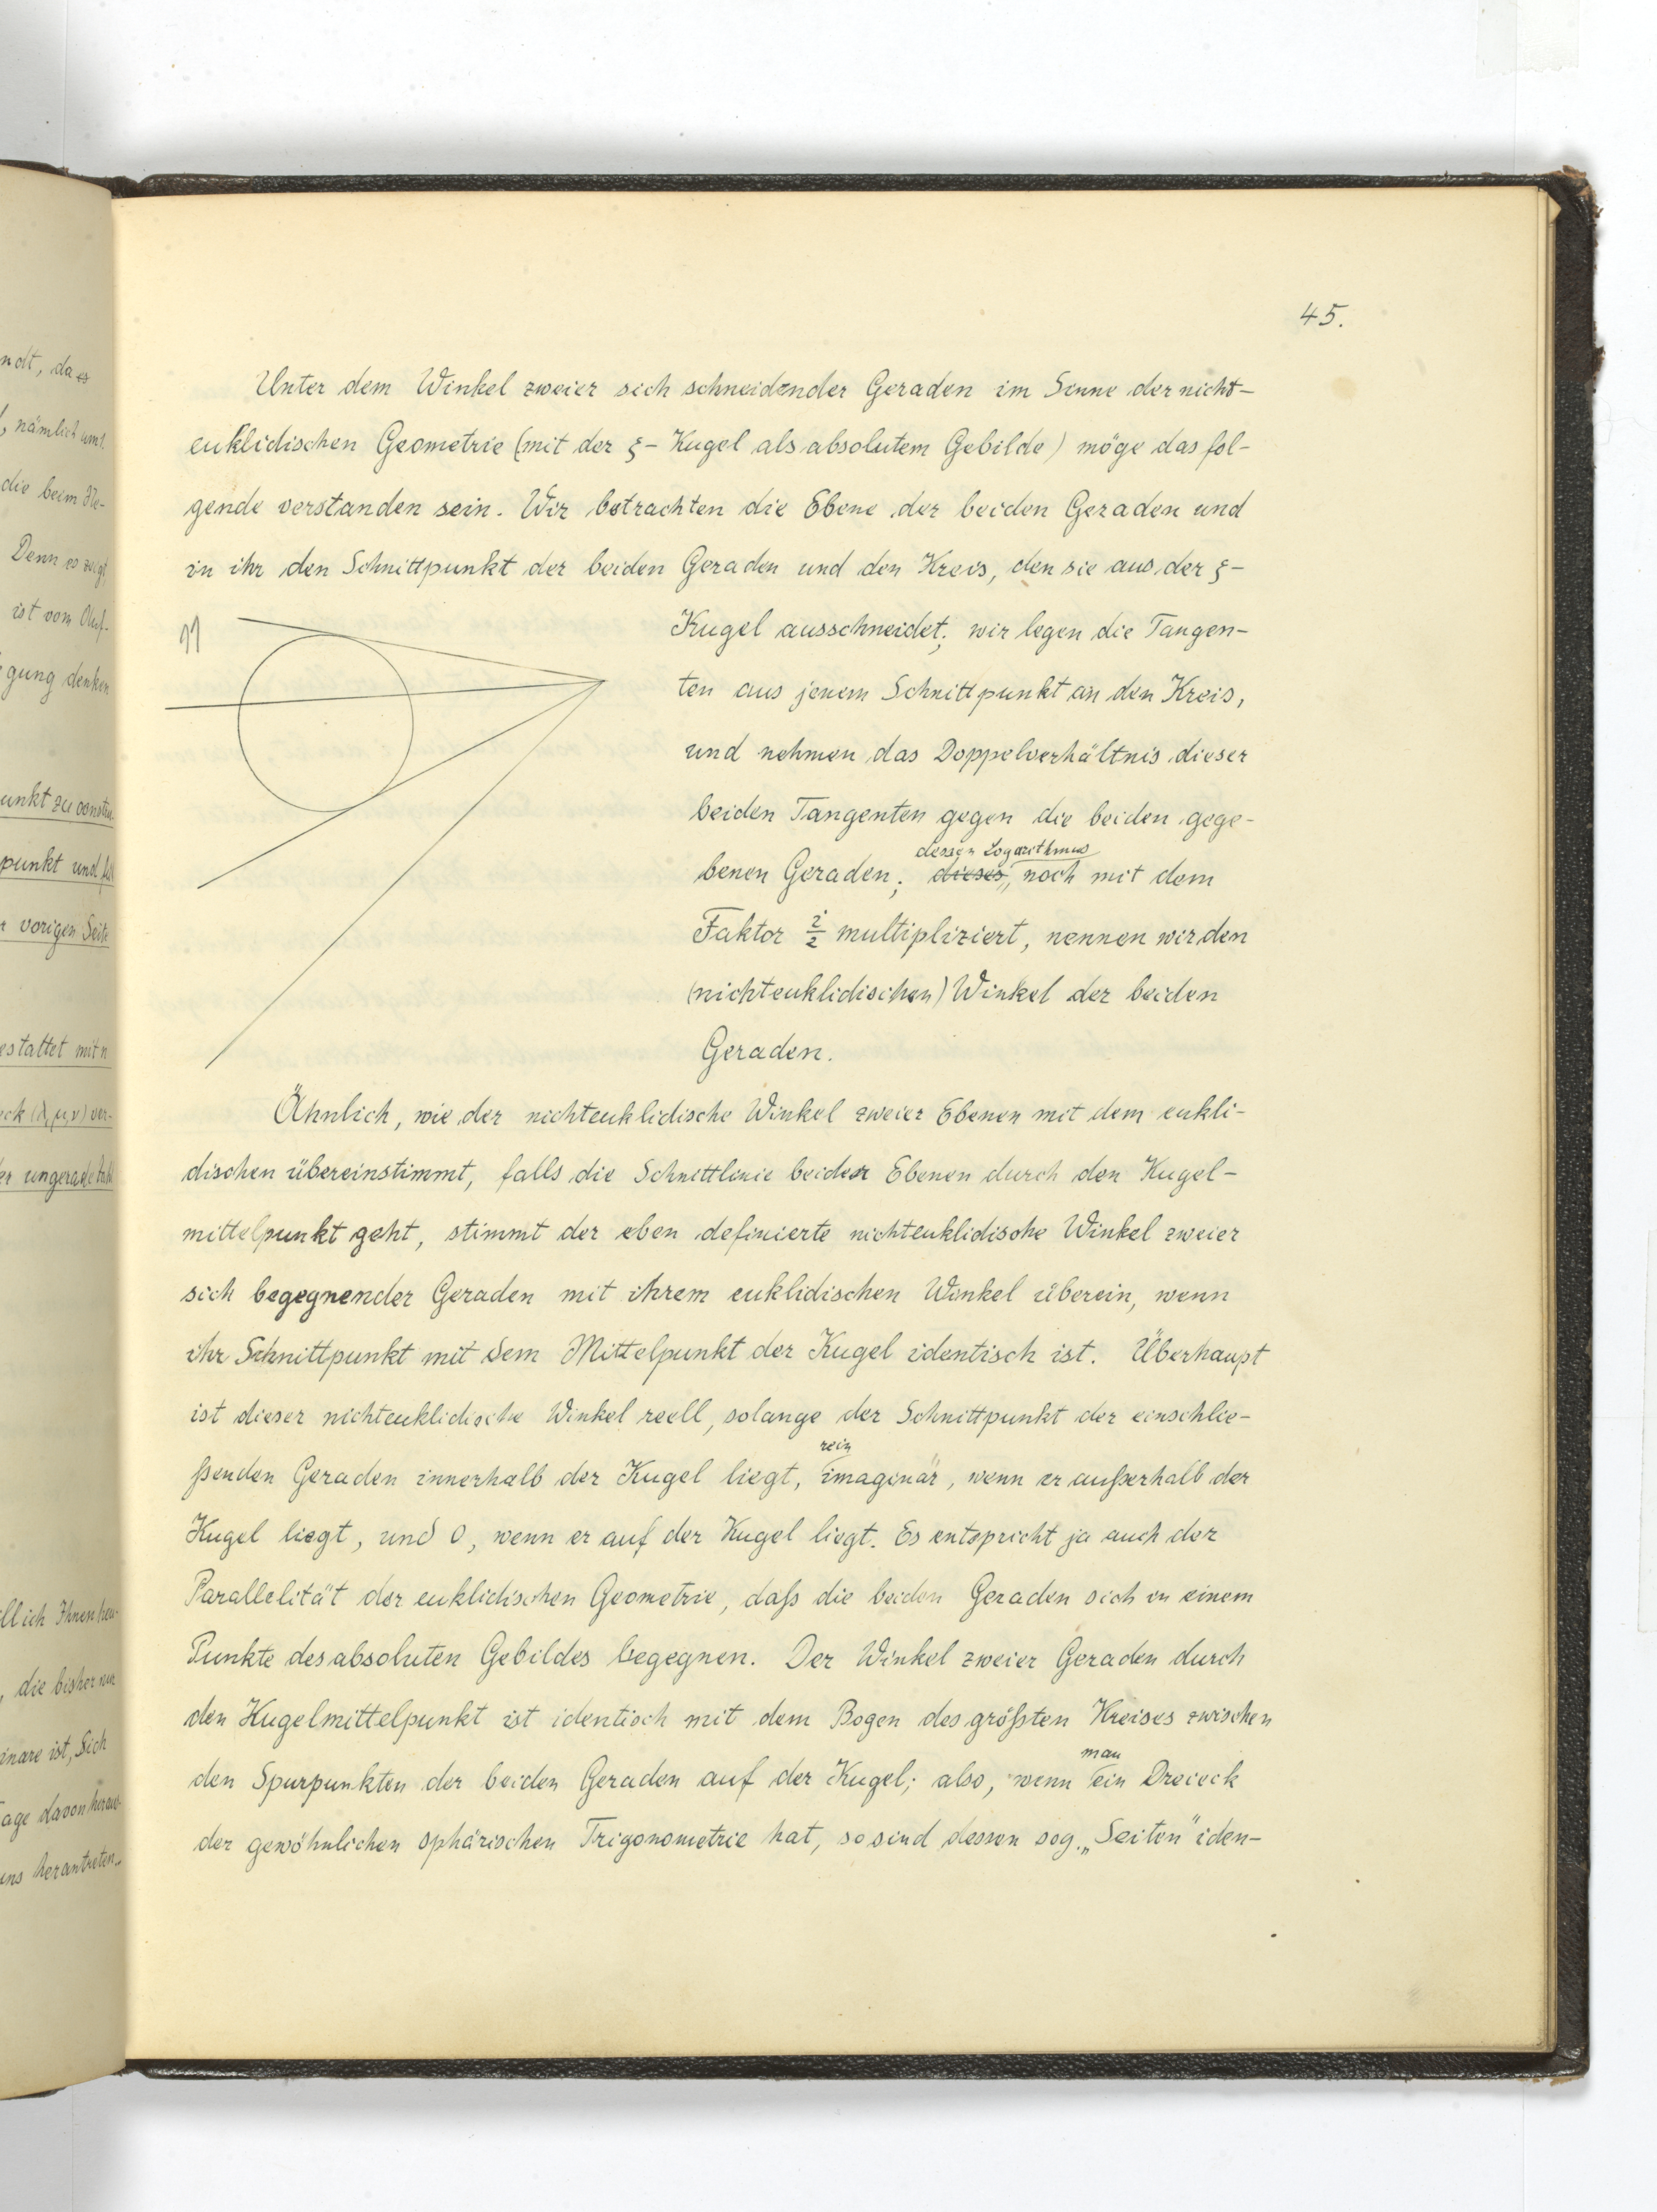 45.
Unter dem Winkel zweier sich schneidender Geraden im Sinne der nicht-
euklidischen Geometrie (mit der ξ- Kugel als absolutem Gebilde) möge das fol-
gende verstanden sein. Wir betrachten die Ebene der beiden Geraden und
in ihr den Schnittpunkt der beiden Geraden und den Kreis, den sie aus der ξ-
Kugel ausschneidet; wir legen die Tangen-
ten aus jenem Schnittpunkt an den Kreis,
und nehmen das Doppelverhältnis dieser
beiden Tangenten gegen die beiden gege-
dessen Logarithmus
benen Geraden; dieses, noch mit dem
Faktor i/2 multipliziert, nennen wir den
(nichteuklidischen) Winkel der beiden
Geraden.
Ähnlich, wie der nichteuklidische Winkel zweier Ebenen mit dem eukli-
dischen übereinstimmt, falls die Schnittlinie beider Ebenen durch den Kugel-
mittelpunkt geht, stimmt der eben definierte nichteuklidische Winkel zweier
sich begegnender Geraden mit ihrem euklidischen Winkel überein, wenn
ihr Schnittpunkt mit dem Mittelpunkt der Kugel identisch ist. Überhaupt
ist dieser nichteuklidische Winkel reell, solange der Schnittpunkt der einschlie-
rein
ßenden Geraden innerhalb der Kugel liegt, imaginär, wenn er außerhalb der
Kugel liegt, und 0, wenn er auf der Kugel liegt. Es entspricht ja auch der
Parallelität der euklidischen Geometrie, daß die beiden Geraden sich in einem
Punkte des absoluten Gebildes begegnen. Der Winkel zweier Geraden durch
den Kugelmittelpunkt ist identisch mit dem Bogen des größten Kreises zwischen
man
den Spurpunkten der beiden Geraden auf der Kugel; also, wenn ein Dreieck
der gewöhnlichen sphärischen Trigonometrie hat, so sind dessen sog. „Seiten" iden-